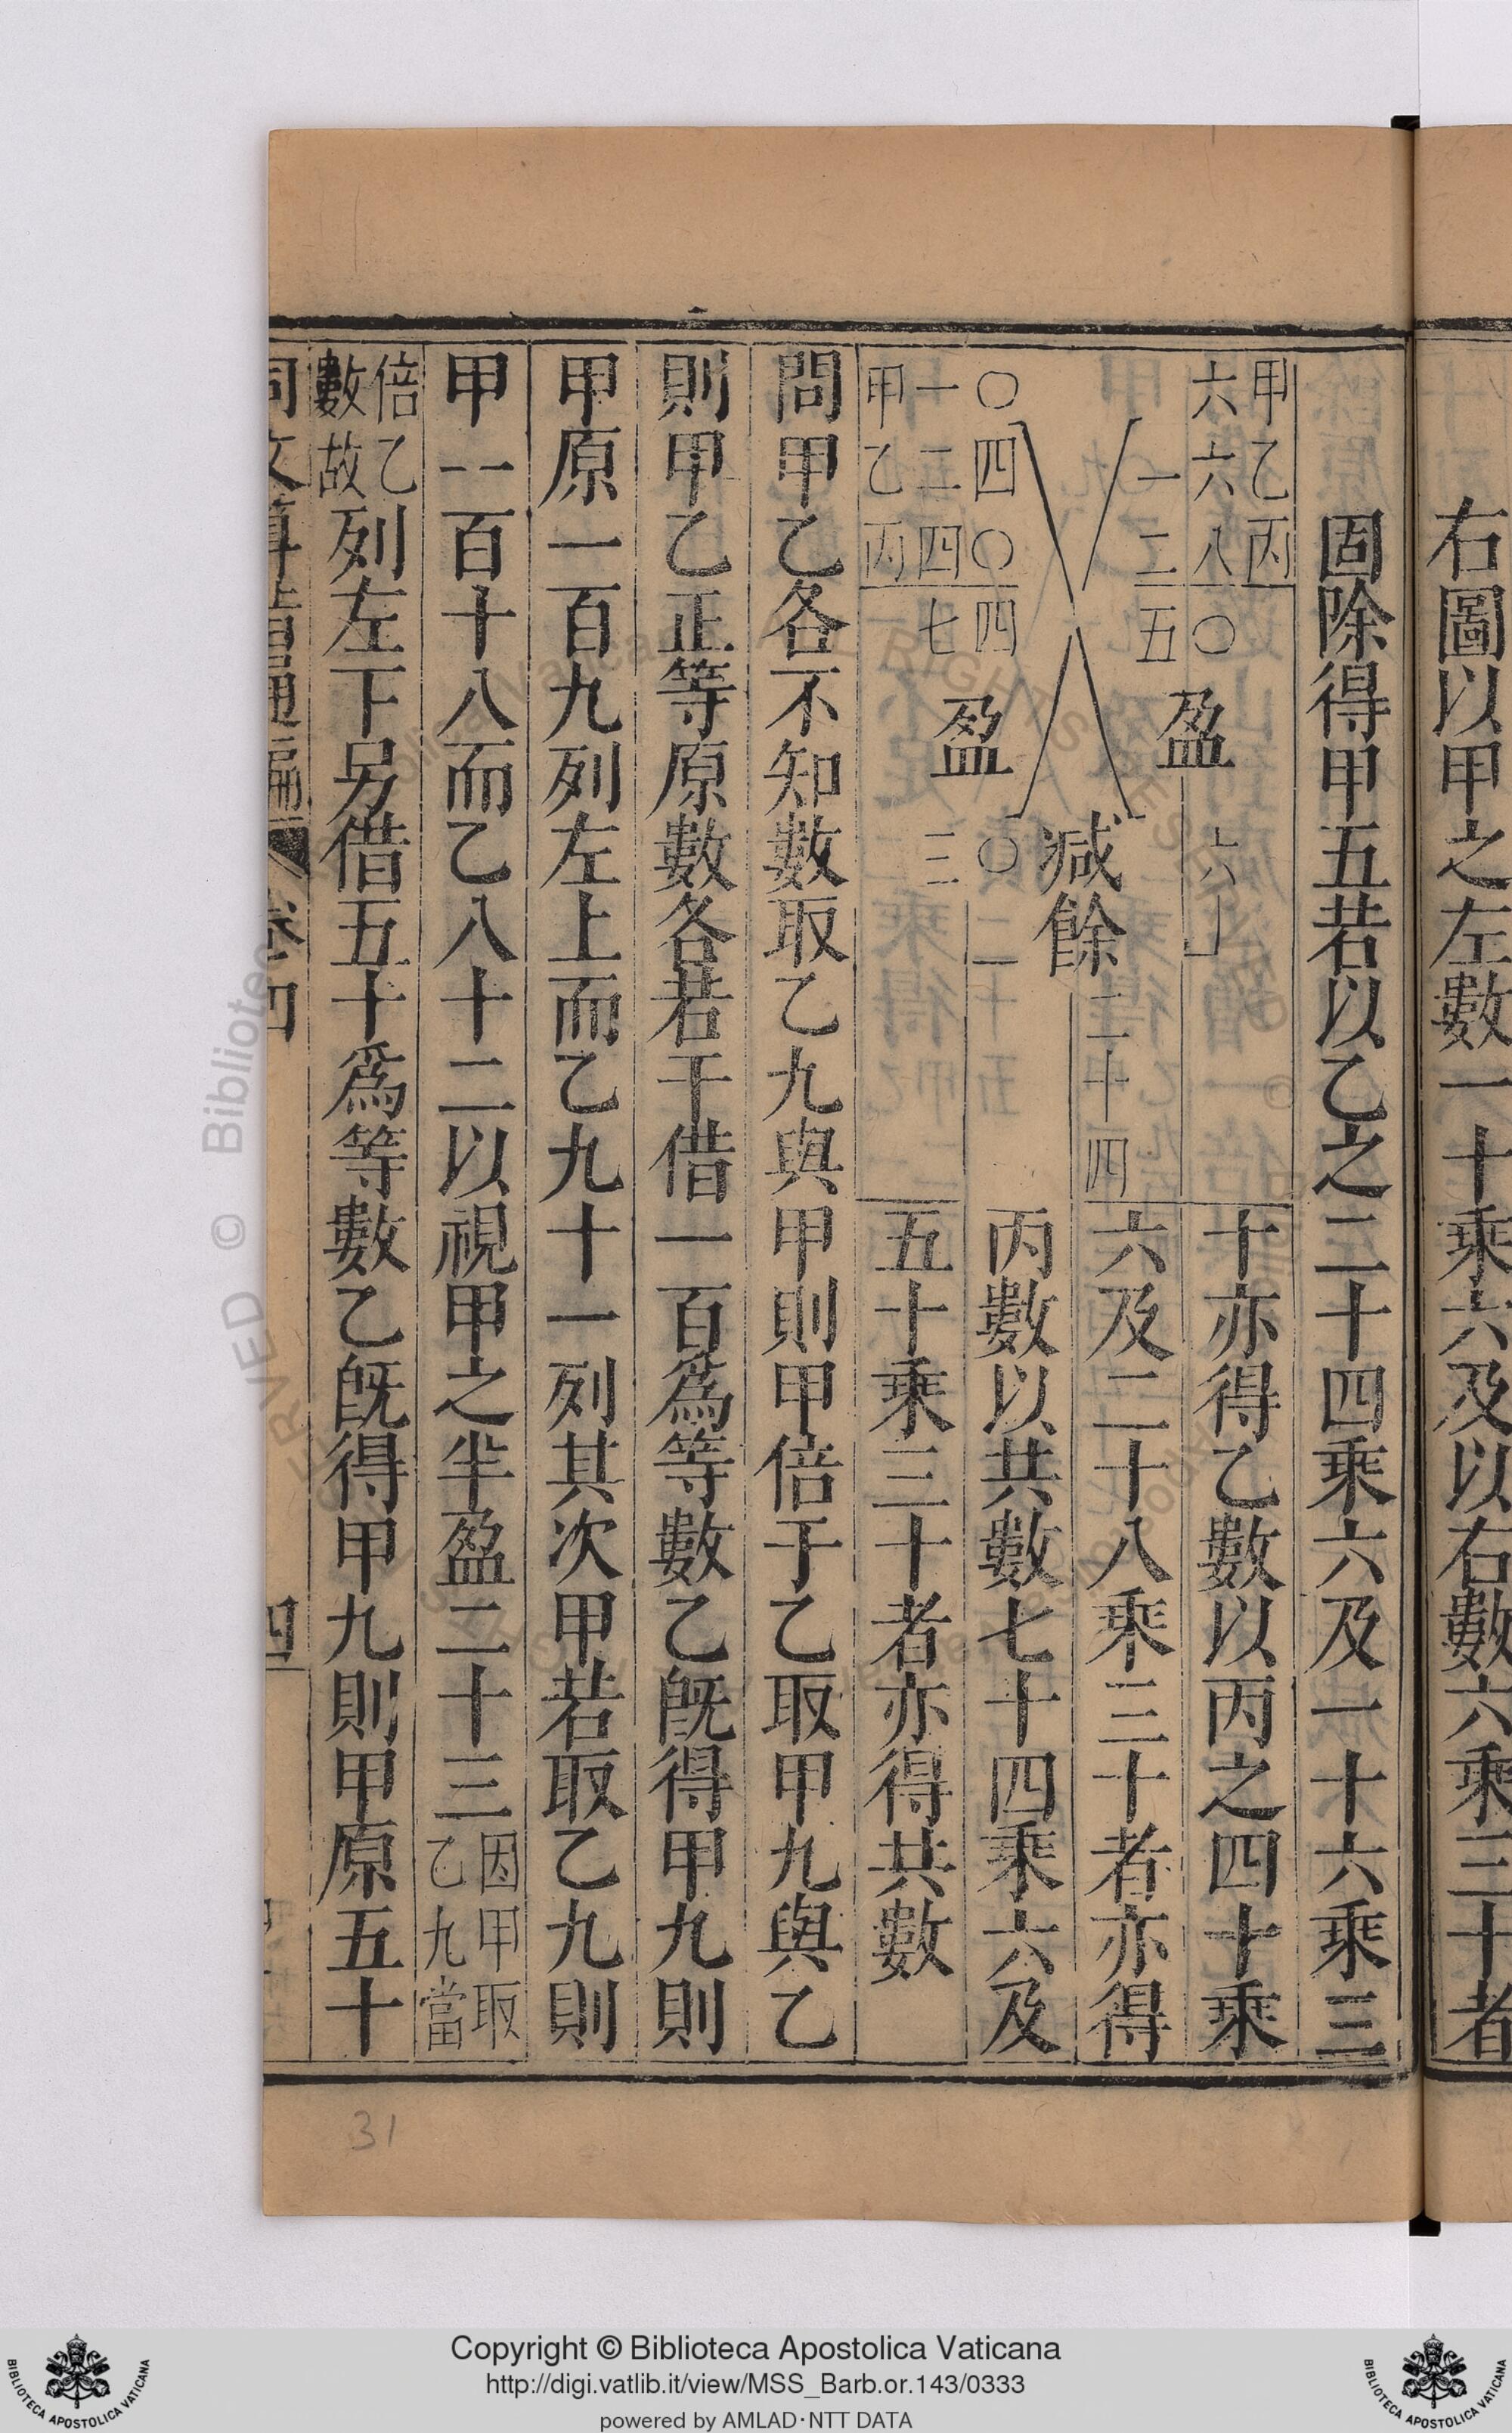 右圖以甲之左數一十乘六及以右數六乘三十者
固除得甲五若以乙之二十四乘六及一十六乘三
十亦得乙數以丙之四十乘
六及二十八乘三十者亦得
丙數以共數七十四乘六及
五十乘三十者亦得共數
甲乙丙
六六八〇
一二五
盈
六
減餘
二十四
〇四〇四
一二四七
甲乙丙
盈
三〇
問甲乙各不知數取乙九與甲則甲倍于乙取甲九與乙
則甲乙正等原數各若干借一百爲等數乙既得甲九則
甲原一百九列左上而乙九十一列其次甲若取乙九則
甲一百十八而乙八十二以視甲之半盈二十三因甲取
乙九當
倍乙
數故列左下另借五十爲等數乙既得甲九則甲原五十
卷四
四
31
© Biblioteca
Copyright © Biblioteca Apostolica Vaticana
http://digi.vatlib.it/view/MSS_Barb.or.143/0333
powered by AMLAD·NTT DATA
BIBLIOTECA APOSTOLICA VATICANA
BIBLIOTECA APOSTOLICA VATICANA